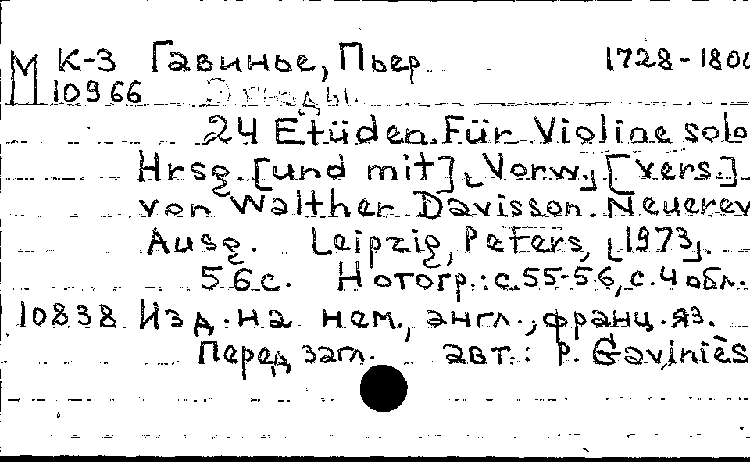 М К-3 Гавинье, Пьер 1728-1800
10966 Этюды.
24 Etüden Für Violine solo
Hrsg. [und mit] Vorw. [vers.]
von Walther Davisson. Neuerev
Ausg. Leipzig, Peters, [1973].
56 с. Нотогр.: с. 55-56, с. 4 обл.
10838 Изд. на нем., англ., франц. яз.
Перед загл. авт.: P. Gaviniès